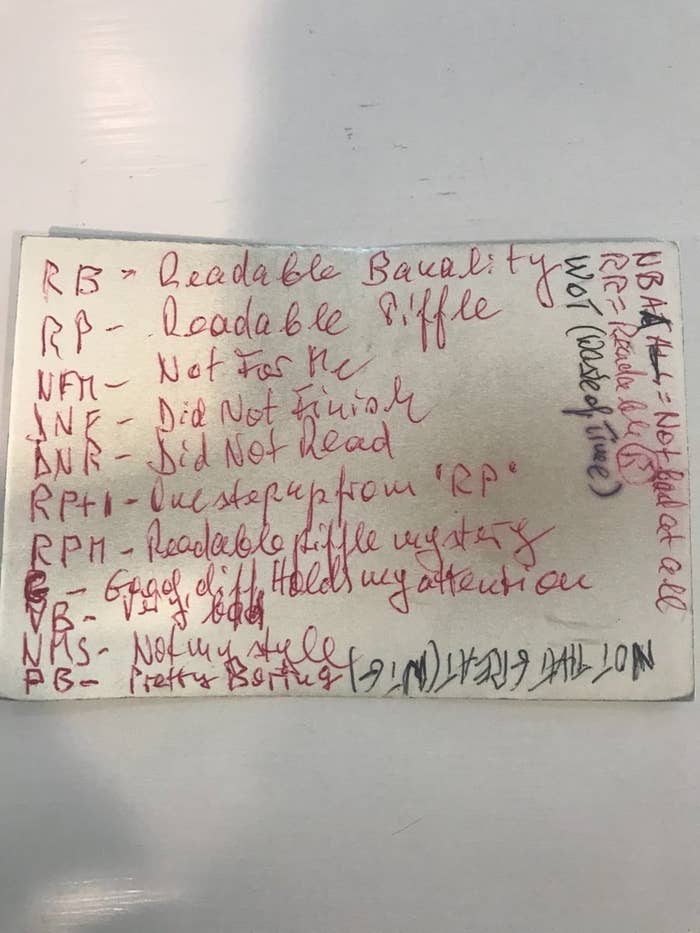 RB - Readable Banality
RP - Readable Piffle
NFM - Not For Me
DNF - Did Not Finish
DNR - Did Not Read
RP+1 - One step up from "RP"
RPM - Readable piffle mystery
G - Good, diff Holds my attention
VB - Very bad
NMS - Not my style
PB - Pretty Boring
NOT THAT GREAT (NTG)
WOT (Waste of Time)
RR = Readable
NBAA = Not bad at all